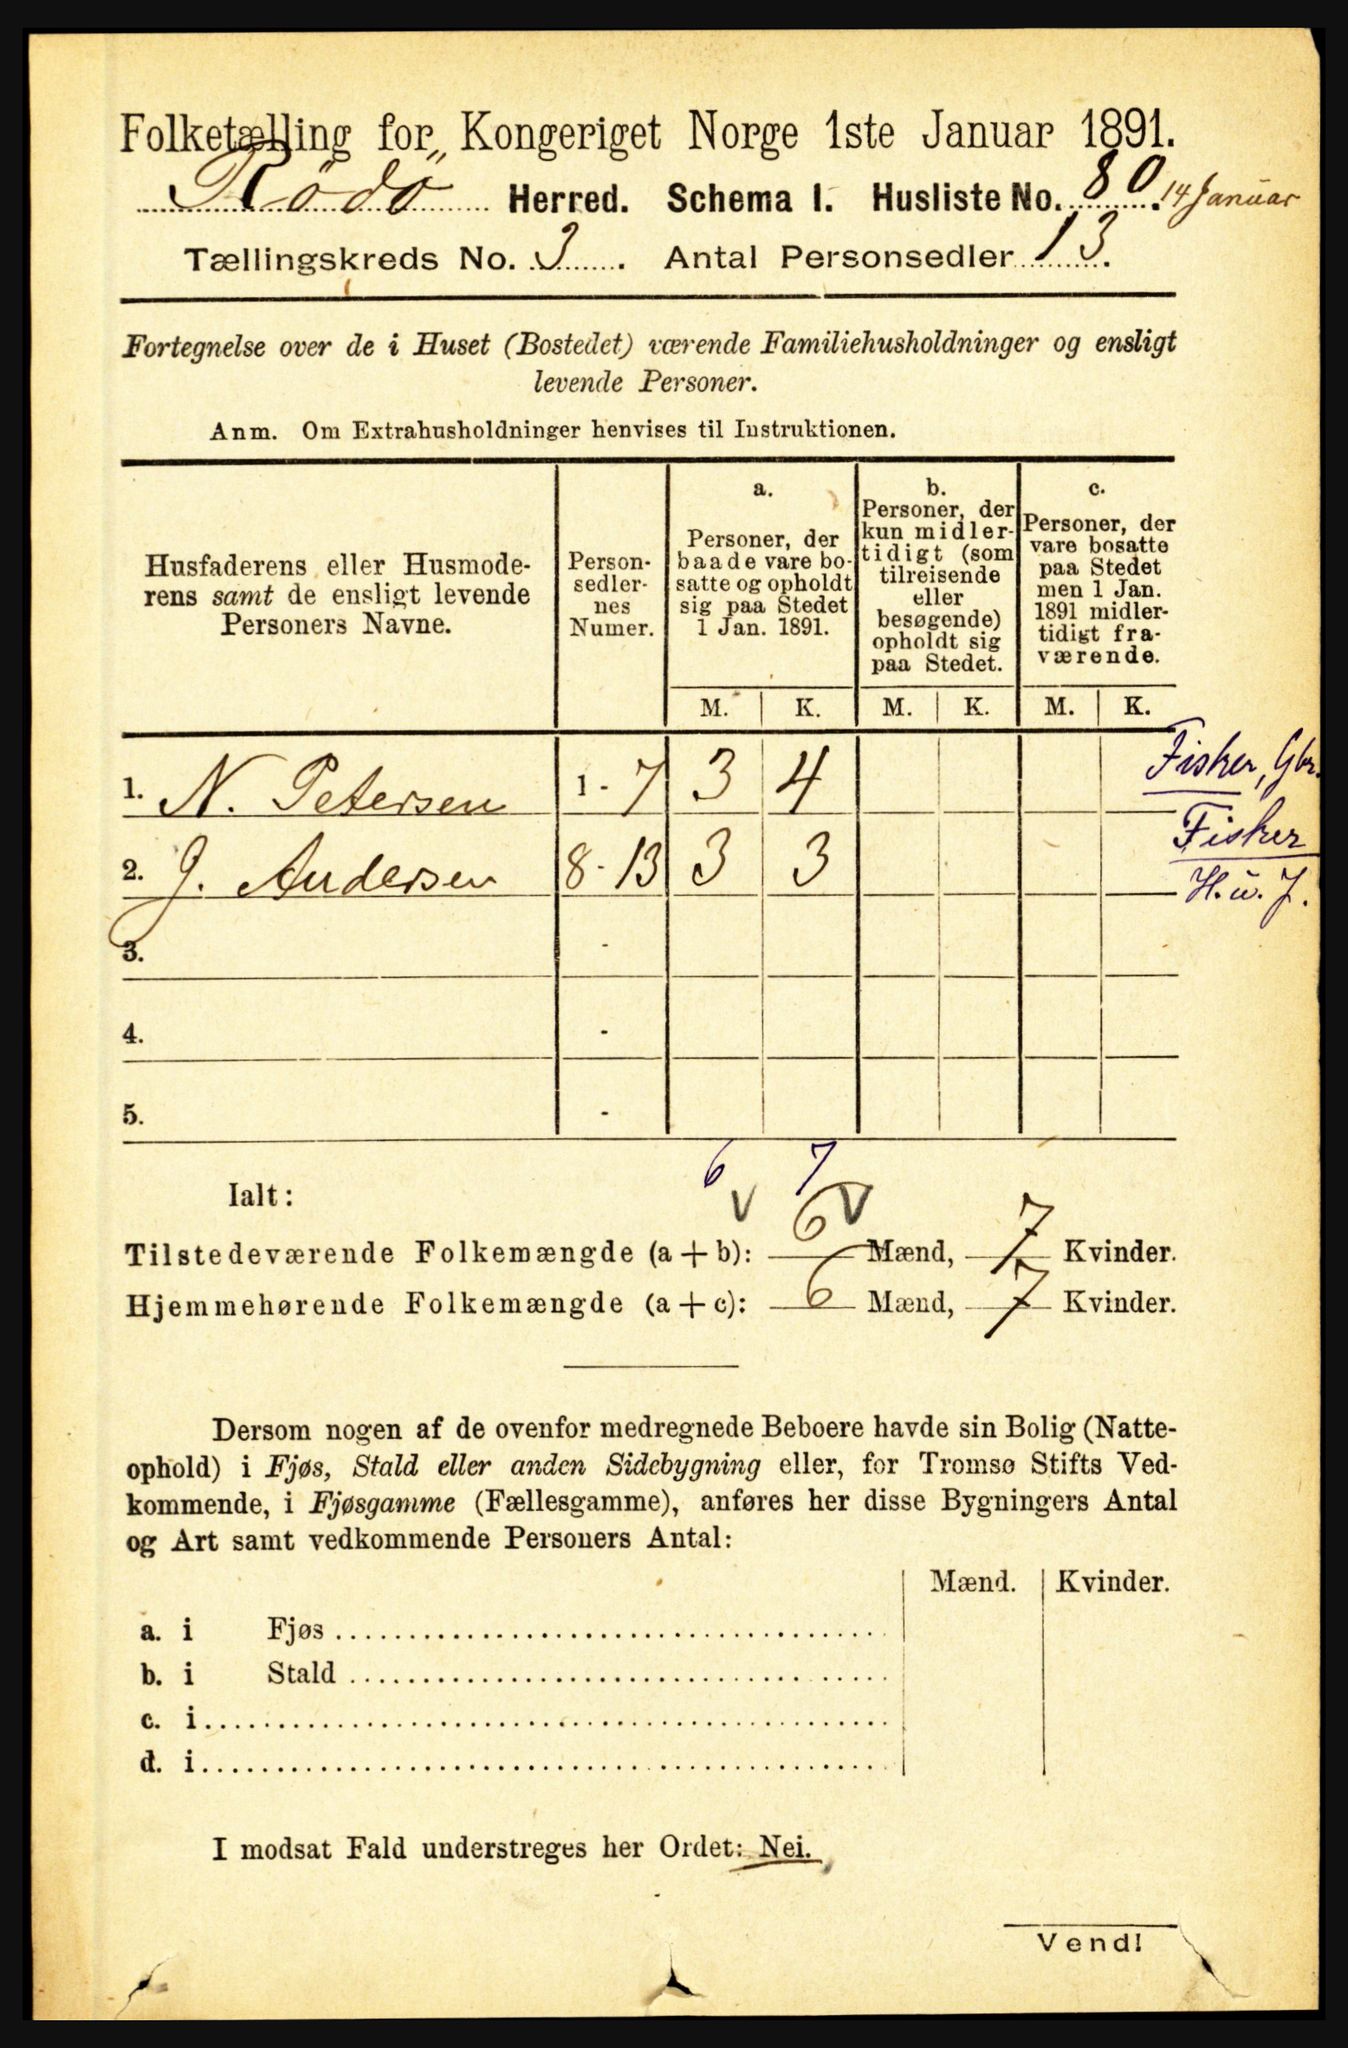 Folketælling for Kongeriget Norge 1ste Januar 1891.
Rödö Herred. Schema I. Husliste No. 80. 14 Januar
Tællingskreds No. 3. Antal Personsedler 13.
Fortegnelse over de i Huset (Bostedet) værende Familiehusholdninger og ensligt
levende Personer.
Anm. Om Extrahusholdninger henvises til Instruktionen.
Husfaderens eller Husmode-
rens samt de ensligt levende
Personers Navne.
Person-
sedler-
nes
Numer.
a.
Personer, der
baade vare bo-
satte og opholdt
sig paa Stedet
1 Jan. 1891.
b.
Personer, der
kun midler-
tidigt (som
tilreisende
eller
besøgende)
opholdt sig
paa Stedet.
c.
Personer, der
vare bosatte
paa Stedet
men 1 Jan.
1891 midler-
tidigt fra-
værende.
M. K. M. K. M. K.
1. N. Petersen 1 - 7 3 4 Fisker, Gbr.
2. J. Andersen 8 - 13 3 3 Fisker
H. u. J.
3. -
4. -
5. -
6 7
Ialt: V V
Tilstedeværende Folkemængde (a + b): 6 Mænd, 7 Kvinder.
Hjemmehørende Folkemængde (a + c): 6 Mænd, 7 Kvinder.
Dersom nogen af de ovenfor medregnede Beboere havde sin Bolig (Natte-
ophold) i Fjøs, Stald eller anden Sidebygning eller, for Tromsø Stifts Ved-
kommende, i Fjøsgamme (Fællesgamme), anføres her disse Bygningers Antal
og Art samt vedkommende Personers Antal:
Mænd. Kvinder.
a. i Fjøs
b. i Stald
c. i
d. i
I modsat Fald understreges her Ordet: Nei.
Vend!